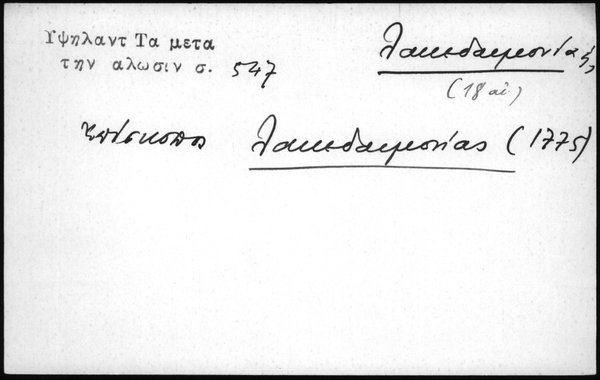 Υψηλαντ Τα μετα
την αλωσιν σ. 547
Λακεδαιμονίας
(18 αἰ)
Ἐπίσκοπος Λακεδαιμονίας (1775)